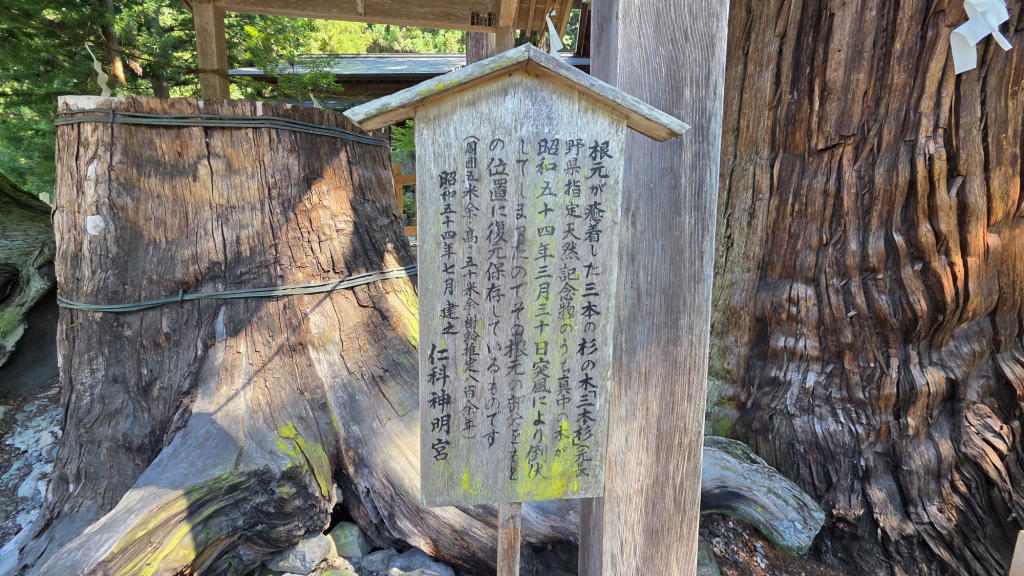 根元が癒着した三本の杉の木「三本杉」元長
野県指定天然記念物のうち真中の一本が
昭和五十四年三月三十日突風により倒伏
してしまったのでその根元の部分をもと
の位置に復元保存しているものです
(周囲五米余、高五十米余、樹齢推定八百余年)
昭和五十四年七月建之
仁科神明宮